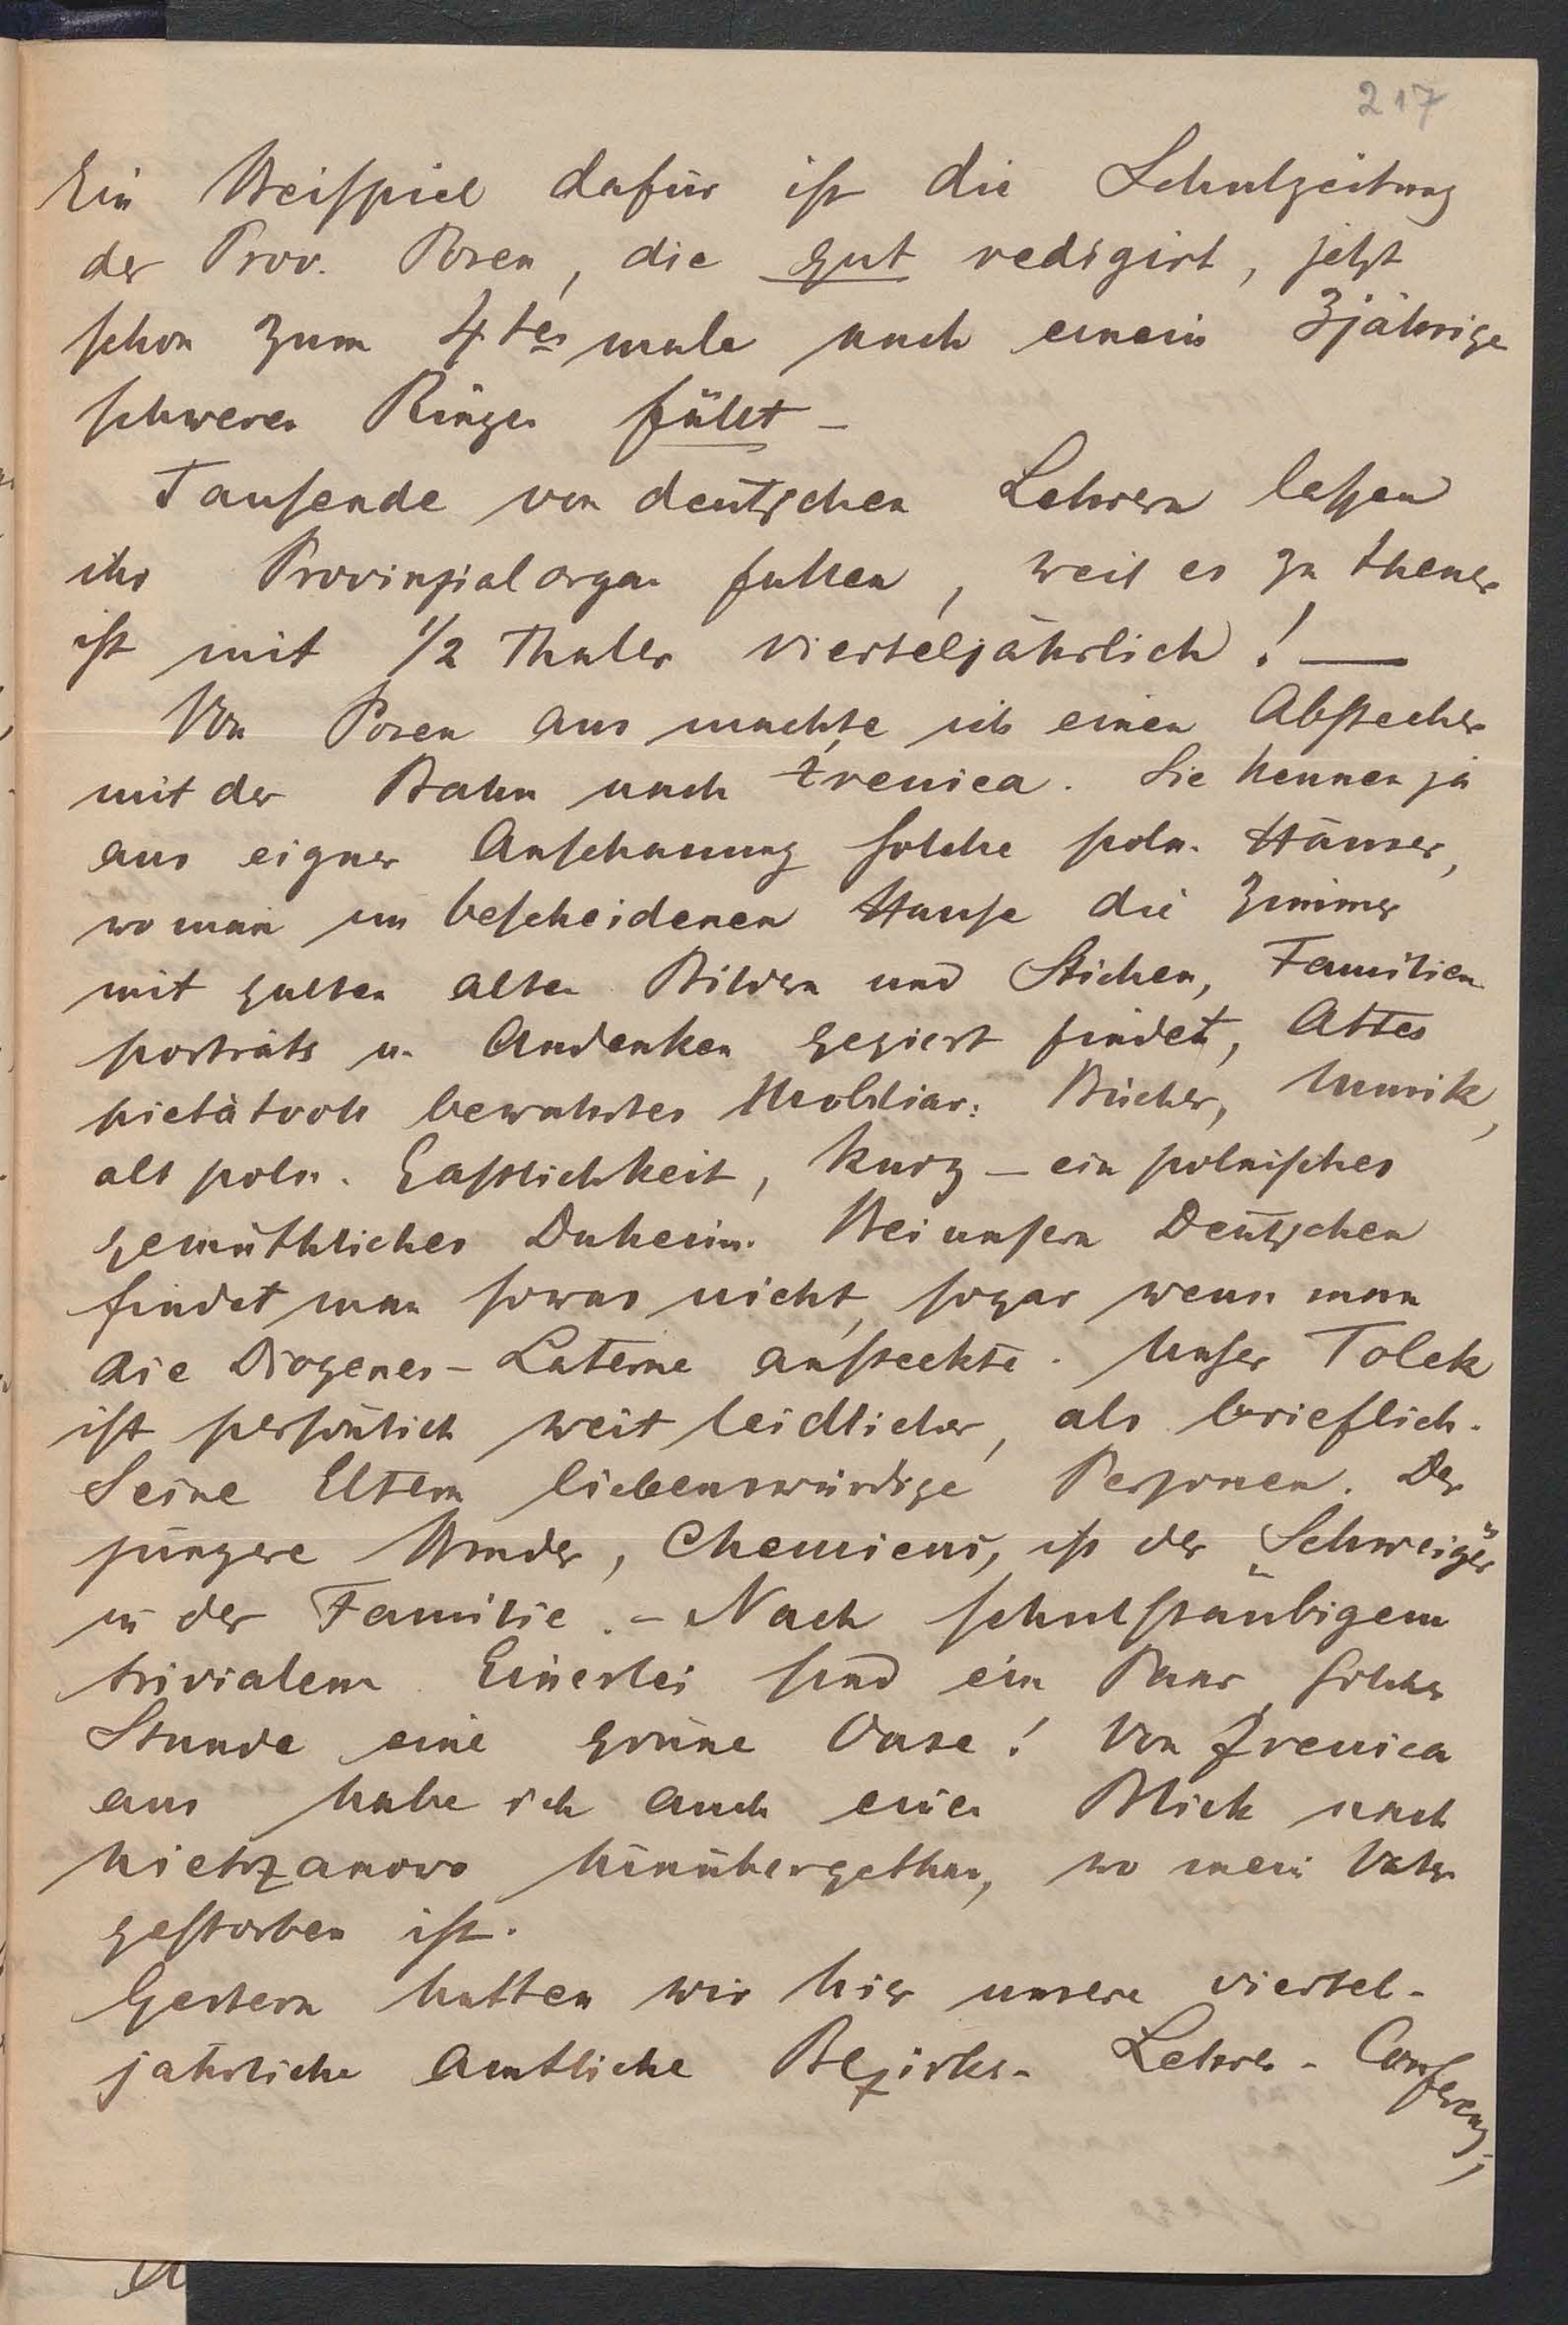 217
Ein Beispiel dafür ist die Schulzeitung
der Prov. Posen, die gut redigirt, jetzt
schon zum 4ten male nach einem 3jährige
schweren Ringen fällt –
Tausende von deutschen Lehrern lassen
ihr Provinzialorgan fallen, weil es zu theuer
ist mit 1/2 Thaler vierteljährlich! —
Von Posen aus machte ich einen Abstecher
mit der Bahn nach Żrenica. Sie kennen ja
aus eigner Anschauung solche poln. Häuser,
wo man im bescheidenen Hause die Zimmer
mit guten alten Bildern und Stichen, Familien
porträts u. Andenken geziert findet, Altes
pietätvoll bewahrtes Mobiliar: Bücher, Musik,
alt poln. Gastlichkeit, kurz – ein polnisches
gemüthliches Daheim. Bei unsern Deutschen
findet man sowas nicht, sogar wenn man
die Diogenes-Laterne ansteckte. Unser Tolek
ist persönlich weit leidlicher, als brieflich.
Seine Eltern liebenswürdige Personen. Der
jüngere Bruder, Chemicus, ist der "Schweiger"
in der Familie. – Nach schulstäubigem
trivialem Einerlei sind ein Paar solcher
Stunde eine grüne Oase! Von Zrenica
aus habe ich auch einen Blick nach
hinübergethan, wo mein Vater
gestorben ist.
Gestern hatten wir hier unsere viertel-
jährliche amtliche Bezirks-Lehrer-Conferenz,